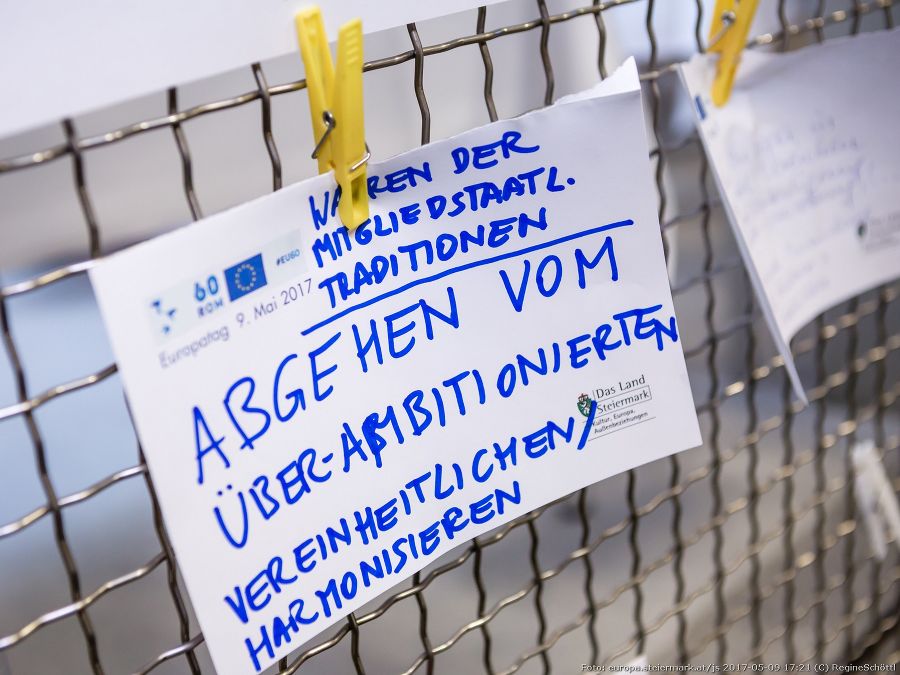 WAHREN DER
MITGLIEDSTAATL.
TRADITIONEN
60
ROM
#EU60
Europatag 9. Mai 2017
ABGEHEN VOM
ÜBER-AMBITIONIERTEN
Das Land
Steiermark
Kultur, Europa,
Außenbeziehungen
VEREINHEITLICHEN/
HARMONISIEREN
Foto: europa.steiermark.at/js 2017-05-09 17:21 (C) RegineSchöttl